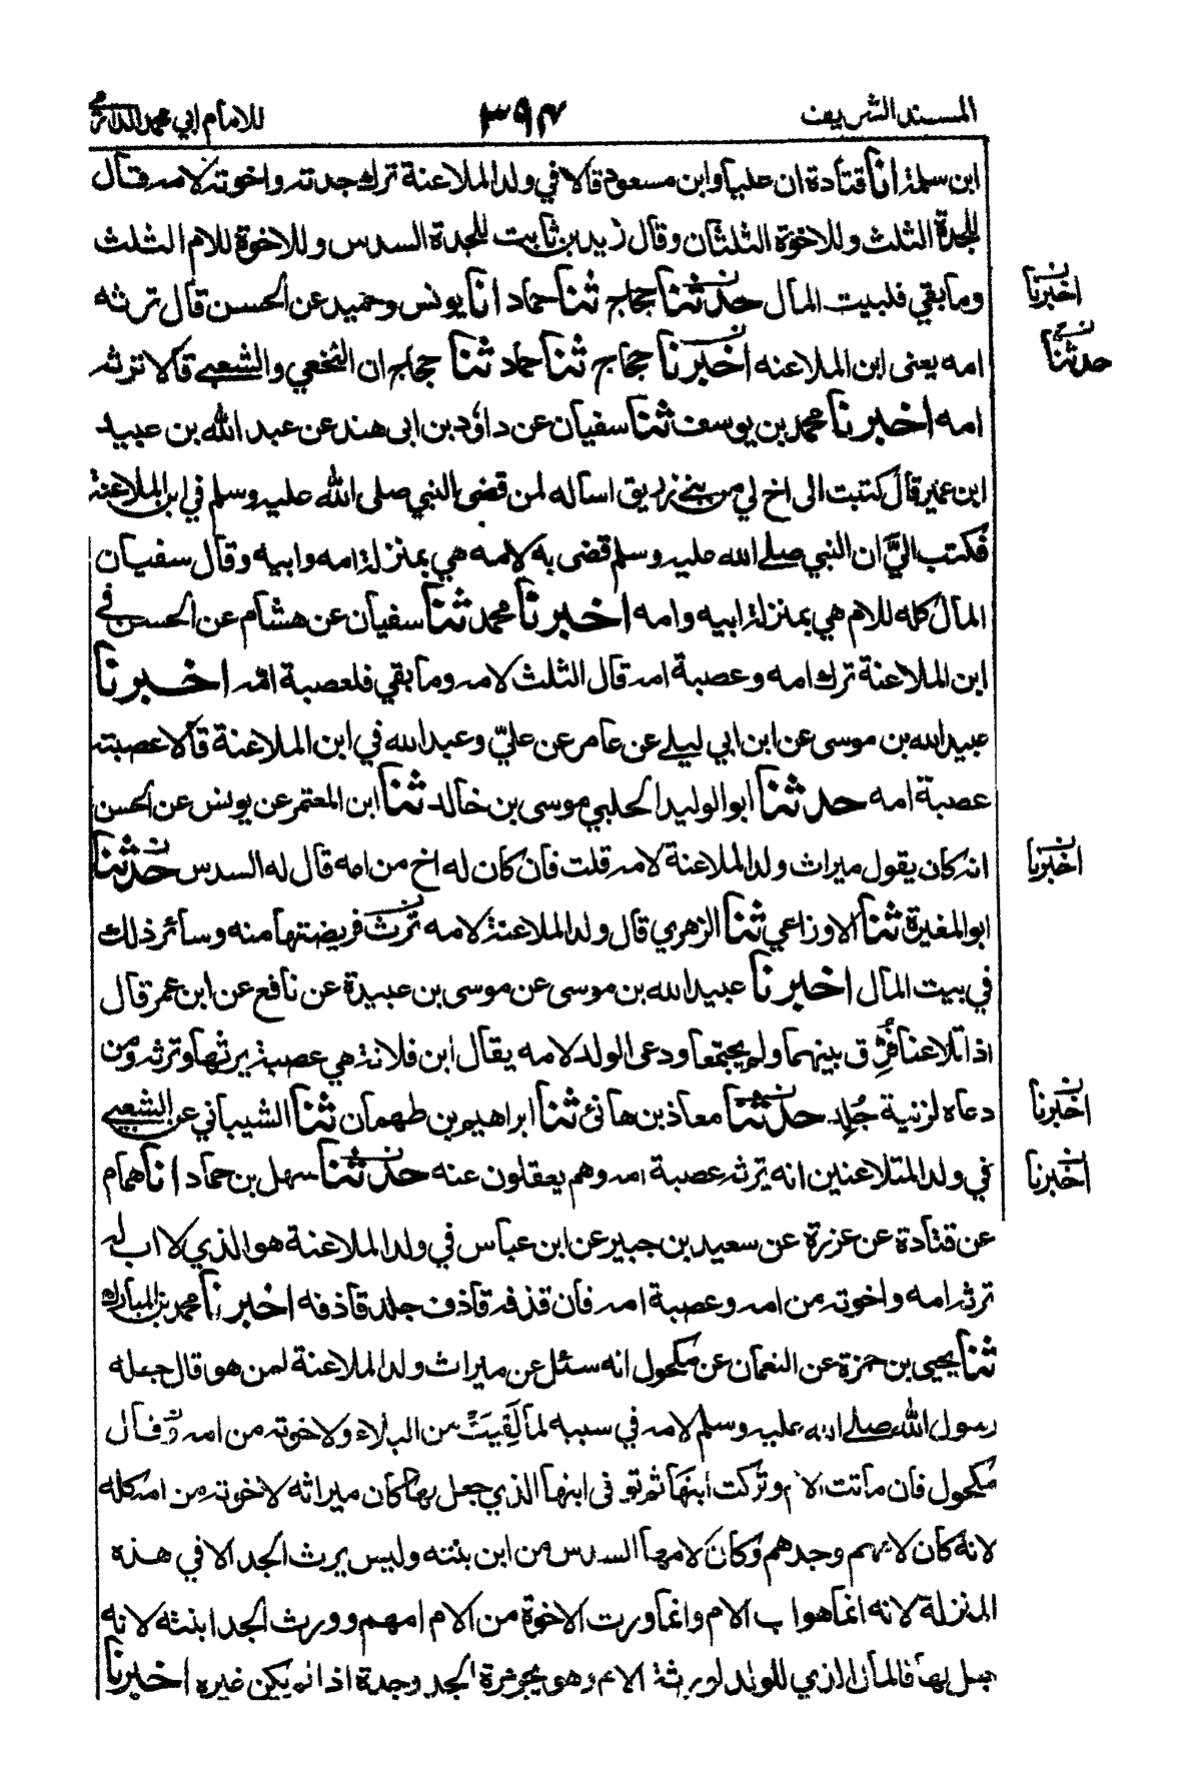 المسند الشريف
٣٩٤
للامام ابي محمد الدارمي
ابن سلمة انا قتادة ان عليا وابن مسعود قالا في ولد الملاعنة ترك جدته واخوته لامه قال
للجدة الثلث وللاخوة الثلثان وقال زيد بن ثابت للجدة السدس وللاخوة للام الثلث
وما بقي فلبيت المال حدثنا حجاج ثنا حماد انا يونس وحميد عن الحسن قال ترثه
امه يعنى ابن الملاعنه اخبرنا حجاج ثنا حماد ثنا حجاج ان النخعي والشعبي قالا ترثه
امه اخبرنا محمد بن يوسف ثنا سفيان عن داؤد بن ابى هند عن عبد الله بن عبيد
ابن عمير قال كتبت الى اخ لي من بني زريق اساله لمن قضى النبي صلى الله عليه وسلم في ابن الملاعنة
فكتب اليَّ ان النبي صلى الله عليه وسلم قضى به لامه هي بمنزلة امه وابيه وقال سفيان
المال كله للام هي بمنزلة ابيه وامه اخبرنا محمد ثنا سفيان عن هشام عن الحسن في
ابن الملاعنة ترك امه وعصبة امه قال الثلث لامه وما بقي فلعصبة امه اخبرنا
عبيد الله بن موسى عن ابن ابي ليلى عن عامر عن عليّ وعبد الله في ابن الملاعنة قالا عصبته
عصبة امه حدثنا ابو الوليد الحلبي موسى بن خالد ثنا ابن المعتمر عن يونس عن الحسن
انه كان يقول ميراث ولد الملاعنة لامه قلت فان كان له اخ من امه قال له السدس حدثنا
ابو المغيرة ثنا الاوزاعي ثنا الزهري قال ولد الملاعنة لامه ترث فريضتها منه وسائر ذلك
في بيت المال اخبرنا عبيد الله بن موسى عن موسى بن عبيدة عن نافع عن ابن عمر قال
اذا تلاعنا فُرِّق بينهما ولم يجتمعا ودعى الولد لامه يقال ابن فلانة هي عصبته يرثها وترثه ومن
دعاه لزنية جُلِد حدثنا معاذ بن هانئ ثنا ابراهيم بن طهمان ثنا الشيباني عن الشعبي
في ولد المتلاعنين انه يرثه عصبة امه وهم يعقلون عنه حدثنا سهل بن حماد انا همام
عن قتادة عن عزرة عن سعيد بن جبير عن ابن عباس في ولد الملاعنة هو الذي لا اب له
ترثه امه واخوته من امه وعصبة امه فان قذفه قاذف جلد قاذفه اخبرنا محمد بن المبارك
ثنا يحيى بن حمزة عن النعمان عن مكحول انه سئل عن ميراث ولد الملاعنة لمن هو قال جعله
رسول الله صلى الله عليه وسلم لامه في سببه لما لَقِيَتْ من البلاء ولاخوته من امه وقال
مكحول فان ماتت الام وتركت ابنها ثم توفى ابنها الذي جعل لها كان ميراثه لاخوته من امه كله
لانه كان لامهم وجدهم وكان لامها السدس من ابن بنته وليس يرث الجد الا في هذه
المنزلة لانه انما هو اب الام وانما ورث الاخوة من الام امهم وورث الجد ابنته لانه
جعل لها فالمال الذي للولد لورثة الام وهو يحرزه الجد وحده اذا لم يكن غيره اخبرنا
اخبرنا
حدثنا
اخبرنا
اخبرنا
اخبرنا